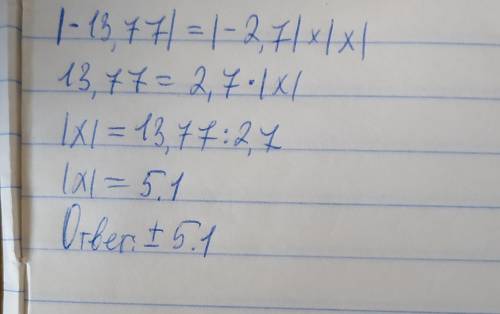 |-13,77| = |-2,7| × |x|
13,77 = 2,7 · |x|
|x| = 13,77 : 2,7
|x| = 5.1
Ответ: ± 5.1